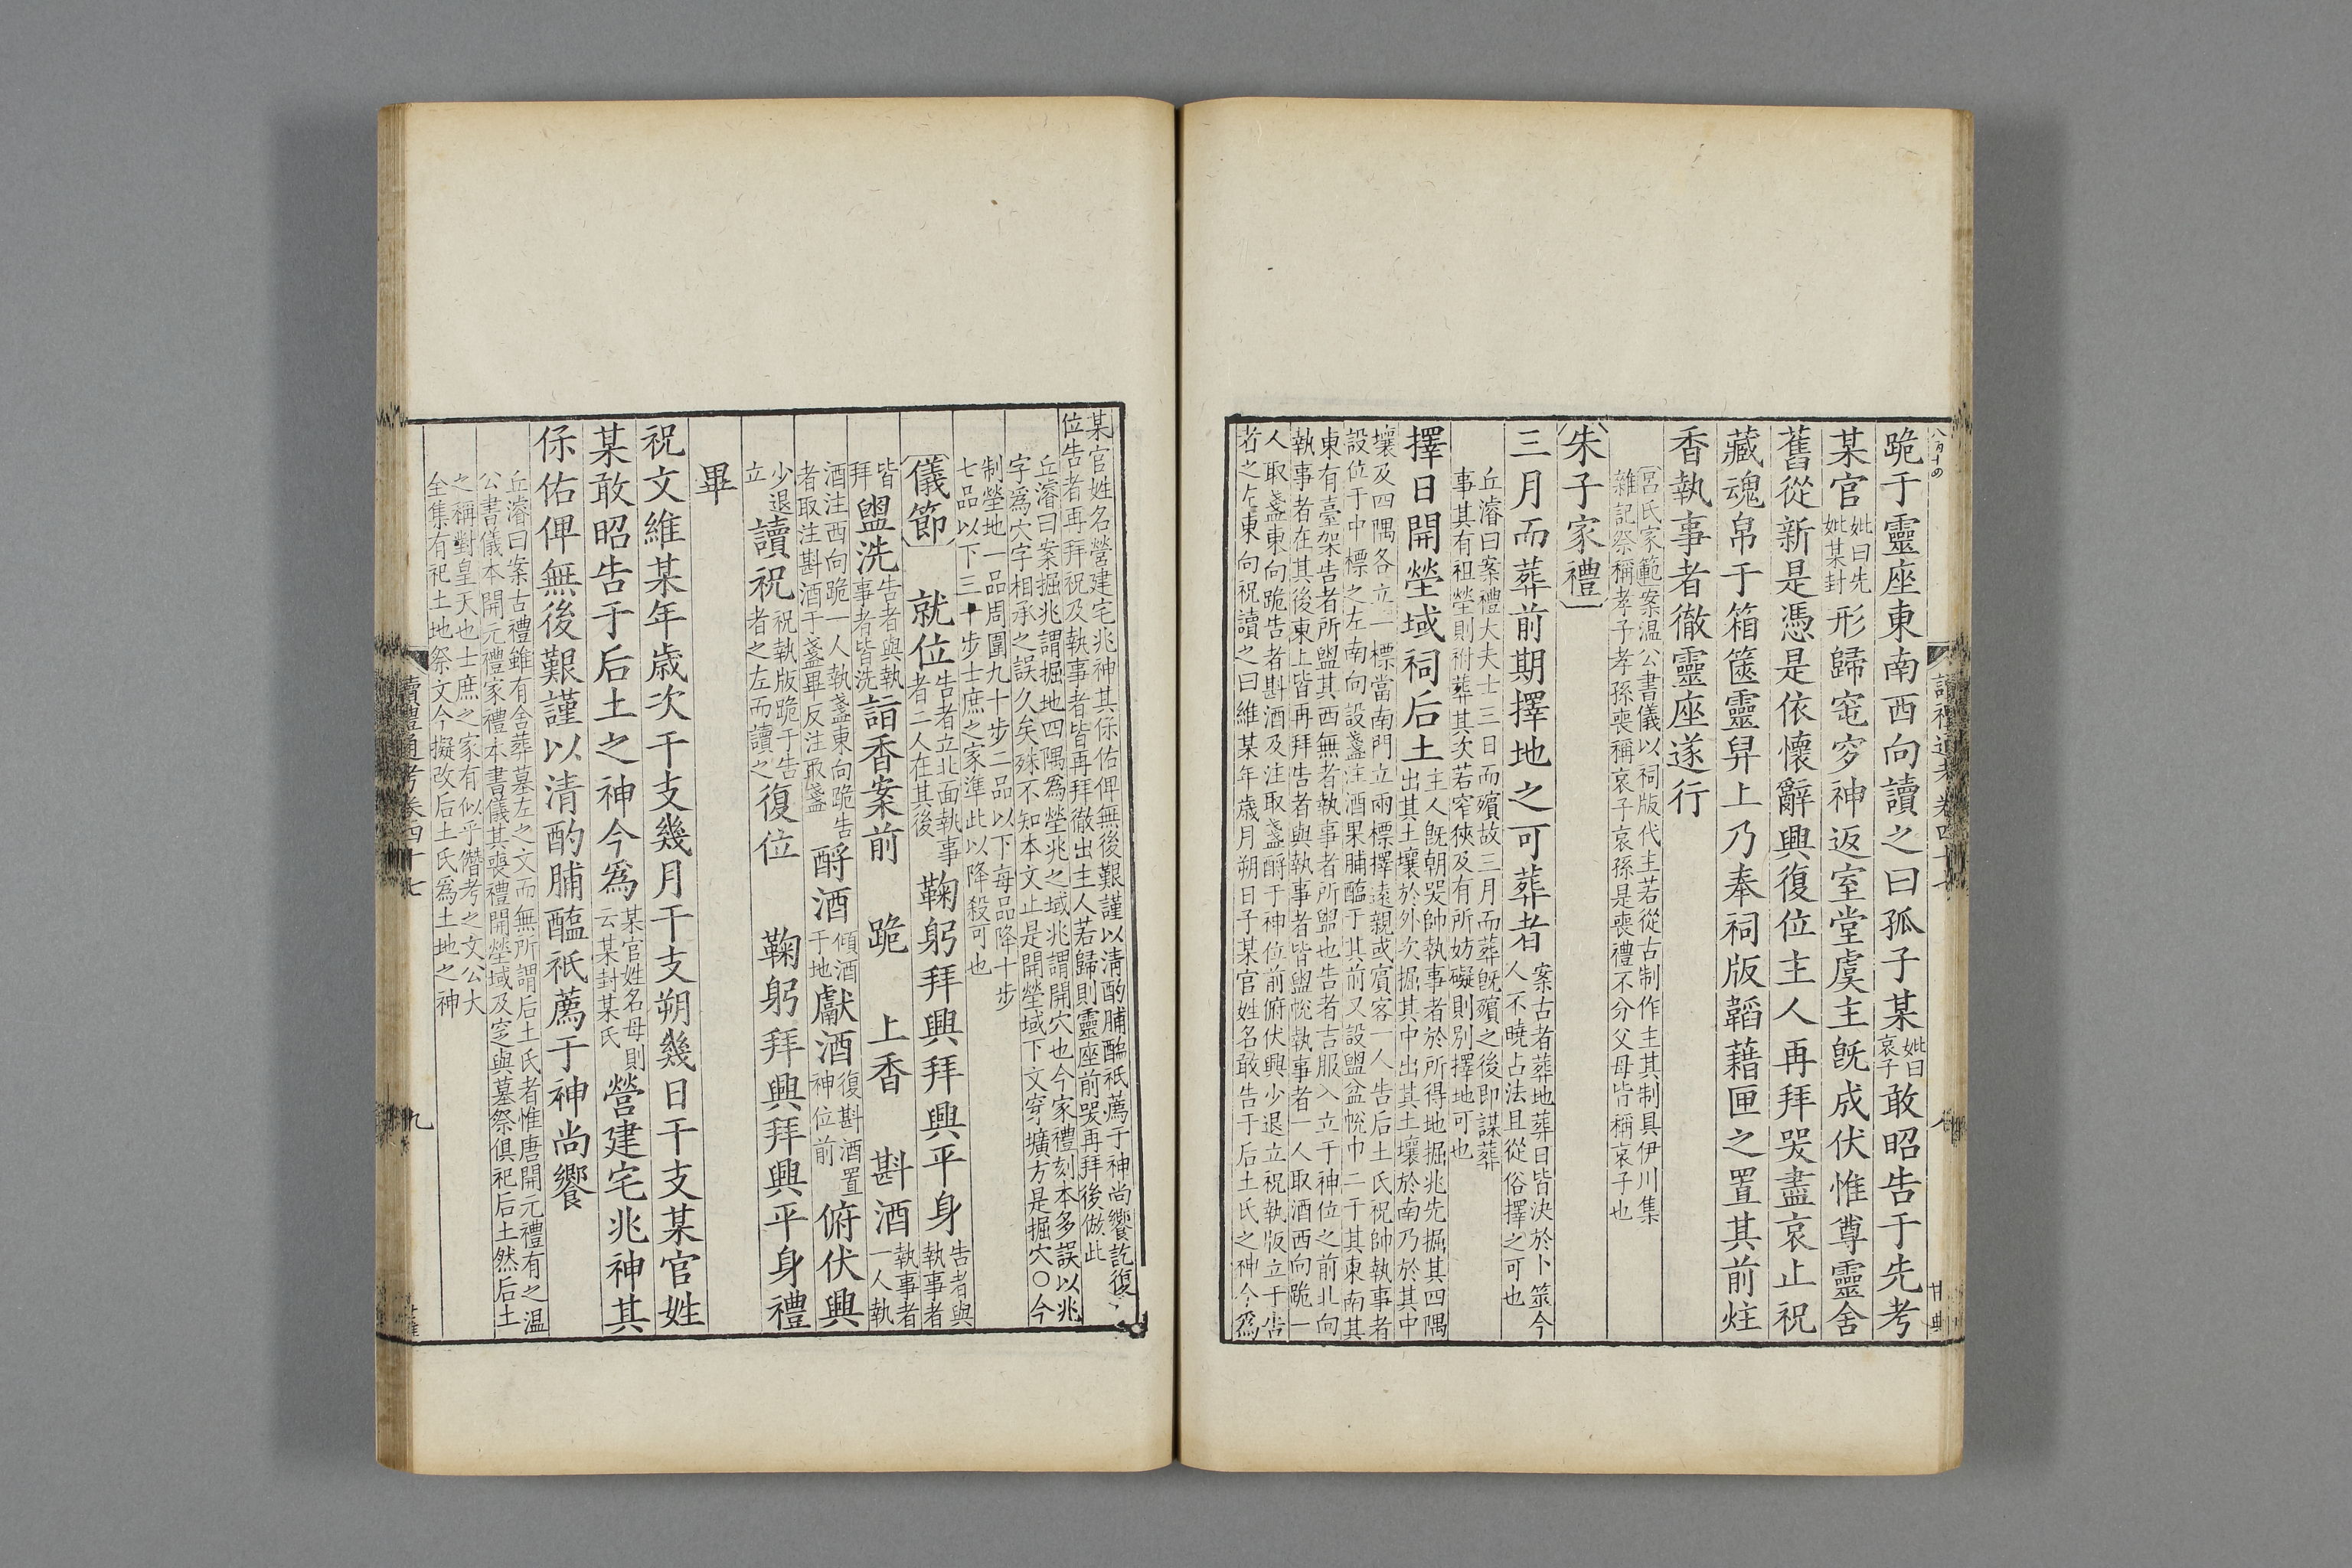 八百十四
讀禮通考卷四十七
八
甘典
跪于靈座東南西向讀之曰孤子某妣曰哀子敢昭告于先考
某官妣曰先妣某封形歸窀穸神返室堂虞主旣成伏惟尊靈舍
舊從新是憑是依懷辭興復位主人再拜哭盡哀止祝
藏魂帛于箱篋靈舁上乃奉祠版韜藉匣之置其前炷
香執事者徹靈座遂行
呂氏家範案溫公書儀以祠版代主若從古制作主其制具伊川集
雜記祭稱孝子孝孫喪稱哀子哀孫是喪禮不分父母皆稱哀子也
朱子家禮
三月而葬前期擇地之可葬者案古者葬地葬日皆決於卜筮今人不曉占法且從俗擇之可也
丘濬曰案禮大夫士三日而殯故三月而葬旣殯之後卽謀葬
事其有祖塋則祔葬其次若窄狹及有所妨礙則別擇地可也
擇日開塋域祠后土主人旣朝哭帥執事者於所得地掘兆先掘其四隅
出其土壤於外次掘其中出其土壤於南乃於其中
壤及四隅各立一標當南門立兩標擇遠親或賓客一人告后土氏祝帥執事者
設位于中標之左南向設盞注酒果脯醢于其前又設盥盆帨巾二于其東南其
東有臺架告者所盥其西無者執事者所盥也告者吉服入立于神位之前北向
執事者在其後東上皆再拜告者與執事者皆盥帨執事者一人取酒西向跪一
人取盞東向跪告者斟酒及注取盞酹于神位前俯伏興少退立祝執版立于告
者之左東向祝讀之曰維某年歲月朔日子某官姓名敢告于后土氏之神今爲
某官姓名營建宅兆神其保佑俾無後艱謹以清酌脯醢祇薦于神尚饗訖復
位告者再拜祝及執事者皆再拜徹出主人若歸則靈座前哭再拜後倣此
丘濬曰案掘兆謂掘地四隅爲塋兆之域兆謂開穴也今家禮刻本多誤以兆
字爲穴字相承之誤久矣殊不知本文止是開塋域下文穿壙方是掘穴○今
制塋地一品周圍九十步二品以下每品降十步
七品以下三十步士庶之家準此以降殺可也
儀節　就位告者立北面執事者二人在其後　鞠躬拜興拜興平身告者與執事者
皆拜盥洗告者與執事者皆洗詣香案前　跪　上香　斟酒執事者一人執
酒注西向跪一人執盞東向跪告者取注斟酒于盞畢反注取盞酹酒傾酒于地獻酒復斟酒置神位前俯伏興
少退立讀祝祝執版跪于告者之左而讀之復位　鞠躬拜興拜興平身禮
畢
祝文維某年歲次干支幾月干支朔幾日干支某官姓
某敢昭告于后土之神今爲某官姓名母則云某封某氏營建宅兆神其
保佑俾無後艱謹以清酌脯醢祇薦于神尚饗
丘濬曰案古禮雖有舍葬墓左之文而無所謂后土氏者惟唐開元禮有之溫
公書儀本開元禮家禮本書儀其喪禮開塋域及窆與墓祭俱祀后土然后土
之稱對皇天也士庶之家有似乎僭考之文公大
全集有祀土地祭文今擬改后土氏爲土地之神
讀禮通考卷四十七
九